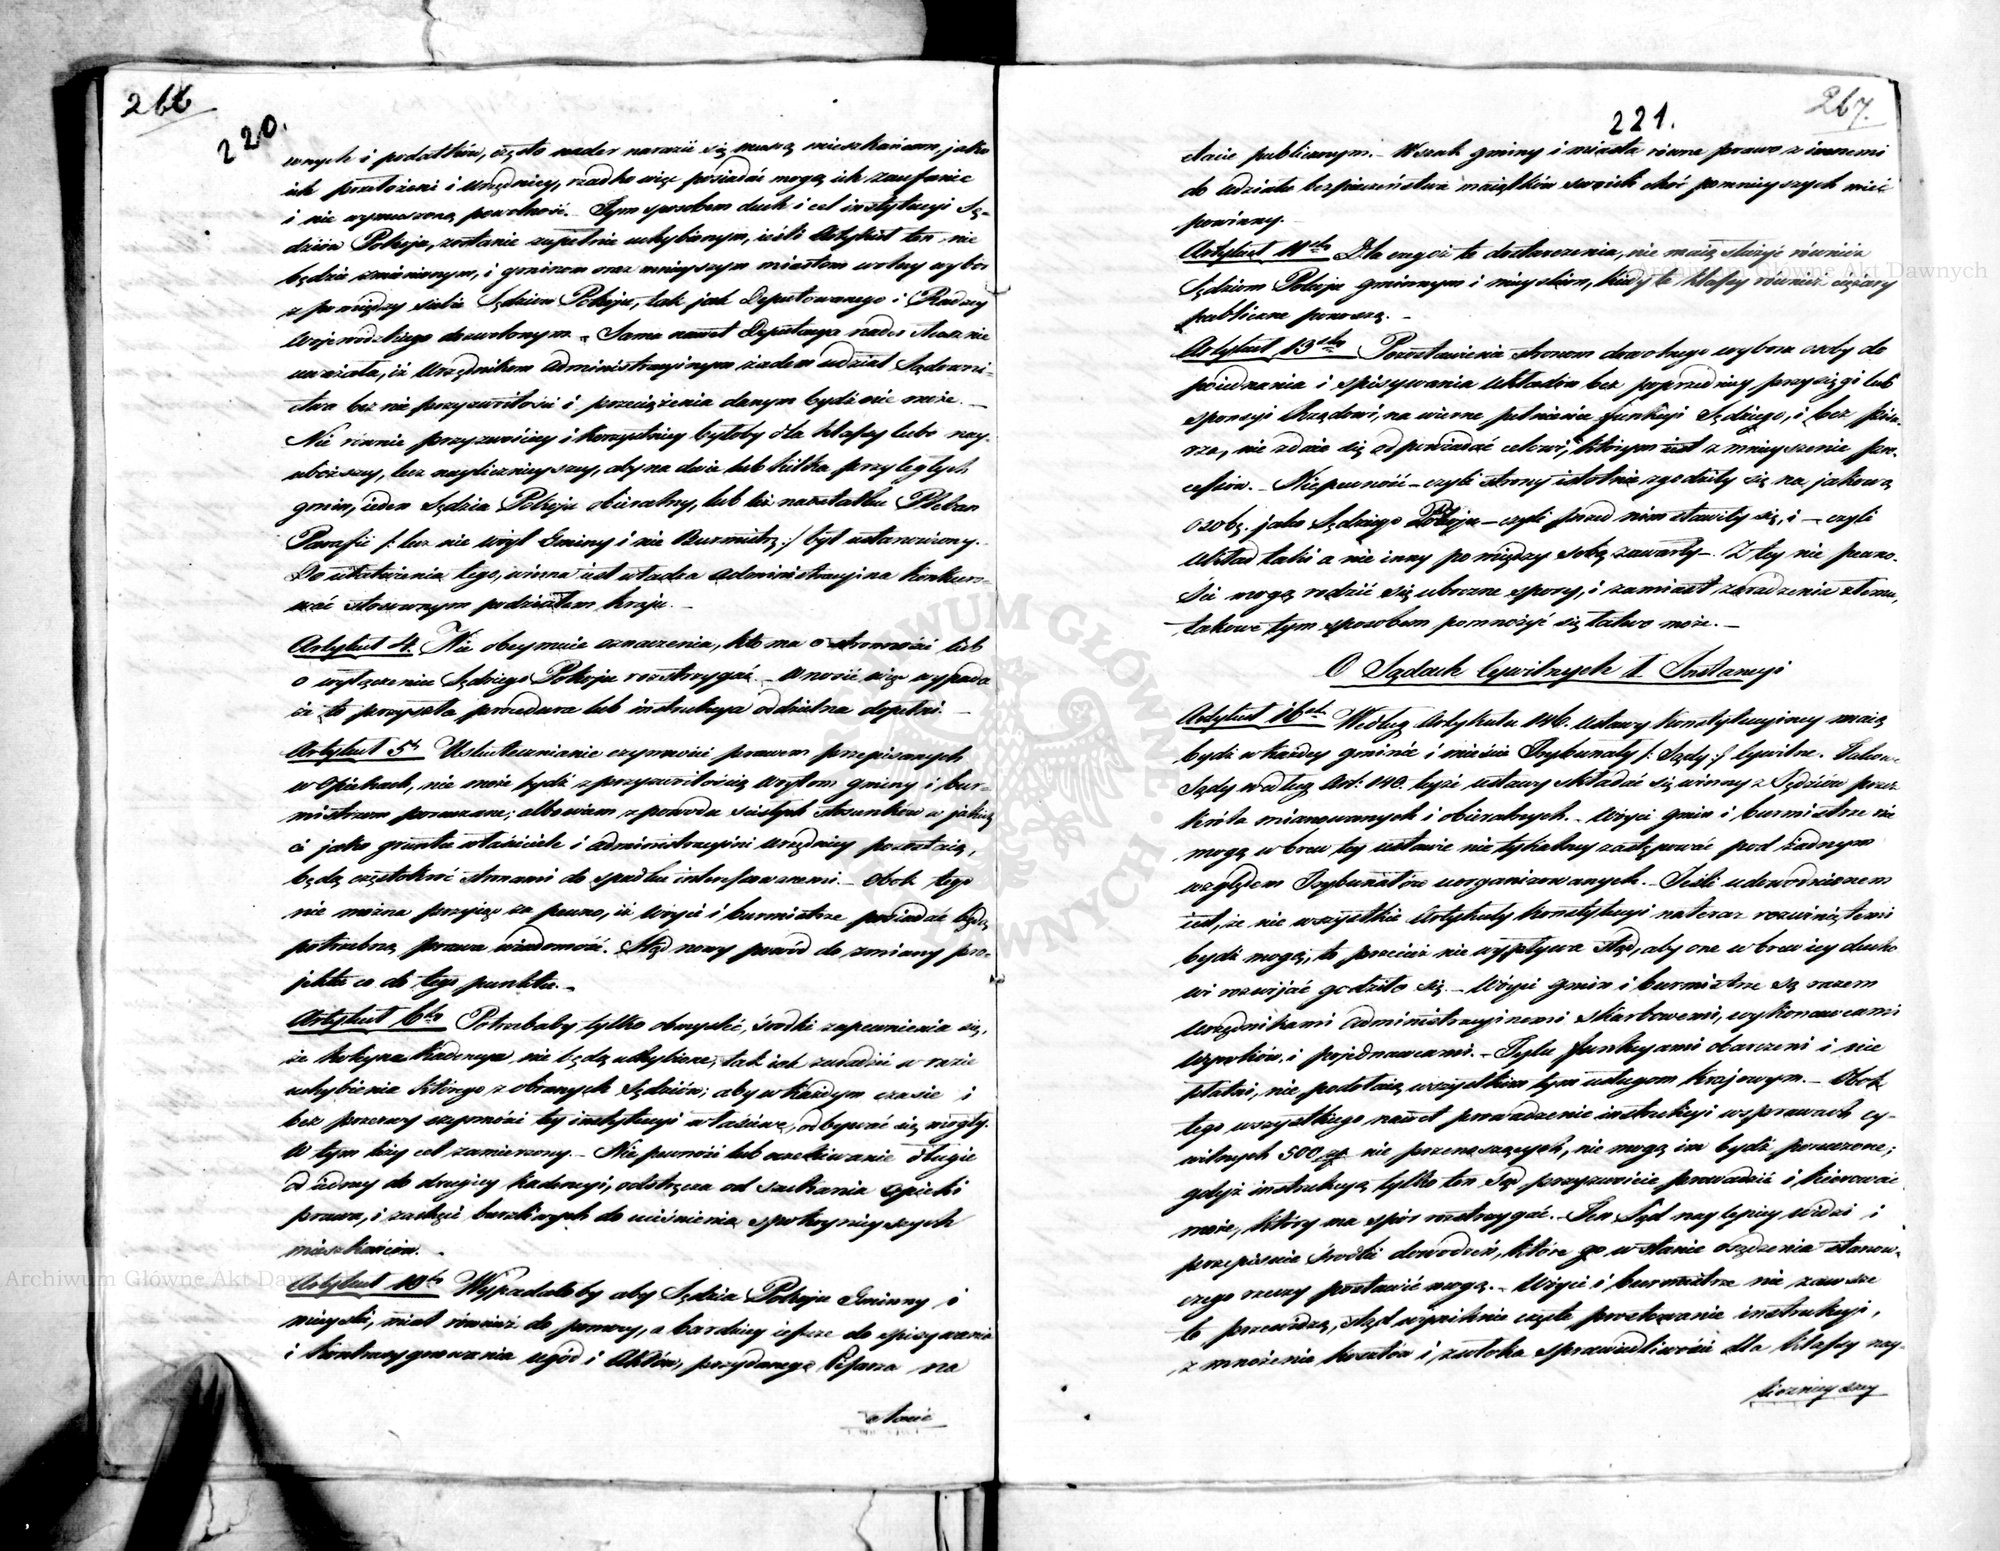 266
220.
wnych i podatków, często nader narazić się muszą mieszkańcom, jako
ich przełożeni i urzędnicy, rzadko więc posiadać mogą ich zaufanie
i nie wymuszoną powolność. Tym sposobem duch i cel instytucyi Sę-
dziów Pokoju, zostanie zupełnie uchybionym, jeśli Artykuł ten nie
będzie zmienionym, i gminom oraz mnieyszym miastom wolny wybór
z pomiędzy siebie Sędziów Pokoju, tak jak Deputowanego i Radzcy
Wojewódzkiego dozwolonym. Sama nawet Deputacya nader słusznie
uważała, iż Urzędnikom Administracyinym żaden udział Sądowni-
ctwa bez nie przyzwoitości i przeciążenia danym bydź nie może. —
Nie równie przyzwoiciey i korzystniey byłoby dla klassy lubo nay-
uboższey, lecz naylicznieyszey, aby na dwie lub kilka przyległych
gmin, ieden Sędzia Pokoju obieralny, lub też na ostatku Pleban
Parafii /: lecz nie woyt Gminy i nie Burmistrz :/ był ustanowiony.
Do ułatwienia tego, winna iest władza administracyina konkuro-
wać stosownym podziałem kraju. —
Artykuł 4. Nie obeymuie oznaczenia, kto ma o stronności lub
o wyłączeniu Sędziego Pokoju rozstrzygać. — Wnosić więc wypada
iż to przyszła procedura lub instrukcya oddzielna dopełni. —
Artykuł 5ty Uskutecznianie czynności prawem przepisanych
w Opiekach, nie może bydź z przyzwoitością woytom gminy i bur-
mistrzom poruczone; albowiem z powodu ścisłych stosunków w jakich
ci jako gruntu właściciele i administracyini urzędnicy pozostaią,
będą częstokroć stronami do spadku interessowanemi. — Obok tego
nie można przyjąć za pewno, iż Woyci i burmistrze posiadać będą
potrzebną prawa wiadomość. Stąd nowy powód do zmiany pro-
jektu co do tego punktu. —
Artykuł 6ty Potrzebaby tylko obmyślić, środki zapewnienia się,
że kolejne kadencye, nie będą uchybione, tak jak zaradzić w razie
uchybienia którego z obranych Sędziów; aby w każdym czasie i
bez przerwy czynności tey instytucyi właściwe, odbywać się mogły.
W tym leży cel zamierzony. — Nie pewność lub oczekiwanie długie
od iedney do drugiey kadencyi, odstręcza od szukania opieki
prawa, i zachęci burzliwych do uciśnienia spokoynieyszych
mieszkańców. —
Artykuł 10ty Wypadałoby aby Sędzia Pokoju Gminny i
mieyski, miał również do pomocy, a bardziey ieszcze do spisywania
i kontrasygnowania ugód i Aktów, przydanego Pisarza na
etacie
267.
221.
etacie publicznym. — Wszak gminy i miasta równe prawo z innemi
do udziału bezpieczeństwa maiątków swoich choć pomnieyszych mieć
powinny. —
Artykuł 11sty Dla czegoż te dostarczenia, nie maią służyć również
Sędziom Pokoju gminnym i mieyskim, kiedy te klassy również ciężary
publiczne ponoszą. —
Artykuł 13sty Pozostawienie stronom dowolnego wyboru osoby do
poiednania i spisywania układów bez poprzedniey przysięgi lub
sponsyi Urzędowi, na wierne pełnienie funkcyi Sędziego, i bez pisa-
rza, nie zdaie się odpowiadać celowi, którym iest zmnieyszenie pro-
cessów. — Niepewność — czyli strony istotnie zgodziły się na jakową
osobę jako Sędziego Pokoju — czyli przed nim stawiły się, i — czyli
układ taki a nie inny pomiędzy sobą zawarły. — Z tey nie pewno-
ści mogą rodzić się uboczne spory, i zamiast zaradzenia złemu,
takowe tym sposobem pomnożyć się łatwo może. —
O Sądach Cywilnych I Instancyi
Artykuł 16sty Według Artykułu 146. ustawy konstytucyiney maią
bydź w każdey gminie i mieście Trybunały /: Sądy :/ Cywilne. Takowe
Sądy według Art: 140. teyże ustawy składać się winny z Sędziów przez
Króla mianowanych i obieralnych. — Woyci gmin i burmistrze nie
mogą wbrew tey ustawie nietykalney zastępować pod żadnym
względem Trybunałów uorganizowanych. — Jeśli udowodnionem
iest, że nie wszystkie Artykuły konstytucyi na teraz rozwiniętemi
bydź mogą, to przecież nie wypływa stąd, aby one wbrew iey ducho-
wi rozwijać godziło się. — Woyci gmin i burmistrze są razem
urzędnikami administracyinemi skarbowemi, wykonawcami
wyroków, i pojednawcami. — Tylu funkcyami obarczeni i nie
płatni, nie podołaią wszystkim tym usługom krajowym. — Obok
tego wszystkiego nawet prowadzenie instrukcyi w sprawach cy-
wilnych 500 zł nie przenoszących, nie mogą im bydź poruczone;
gdyż instrukcyą tylko ten Sąd przyzwoicie prowadzić i kierować
może, który ma spór rozstrzygać. — Ten Sąd naylepiey widzi i
przepisuie środki dowodzeń, które go w stanie osądzenia stanow-
czego rzeczy postawić mogą. — Woyci i burmistrze nie zawsze
to przewidzą, stąd wyniknie częste prostowanie instrukcyi,
zmnożenie kosztów i zwłoka sprawiedliwości dla klassy nay-
licznieyszey
Archiwum Główne Akt Dawnych
Archiwum Główne Akt Dawnych
ARCHIWUM GŁÓWNE AKT DAWNYCH